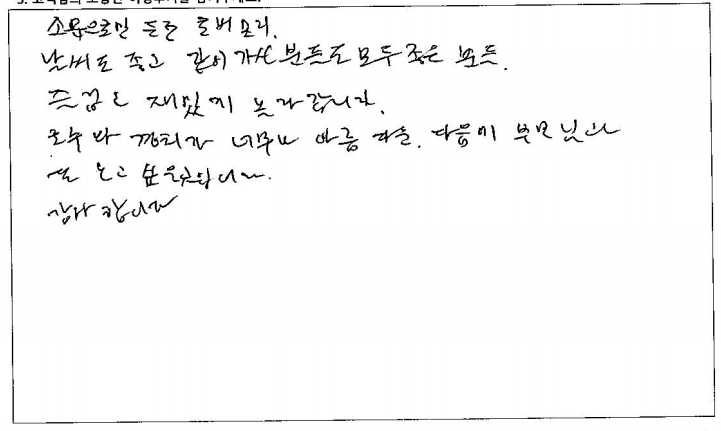 소문으로만 듣던 로버 오리.
날씨도 좋고 같이 가신 분들도 모두 좋은 분들.
즐겁고 재밌게 놀다 갑니다.
너무나 아름다움. 다음에 부모님과
또 오고 싶은곳입니다.
감사합니다